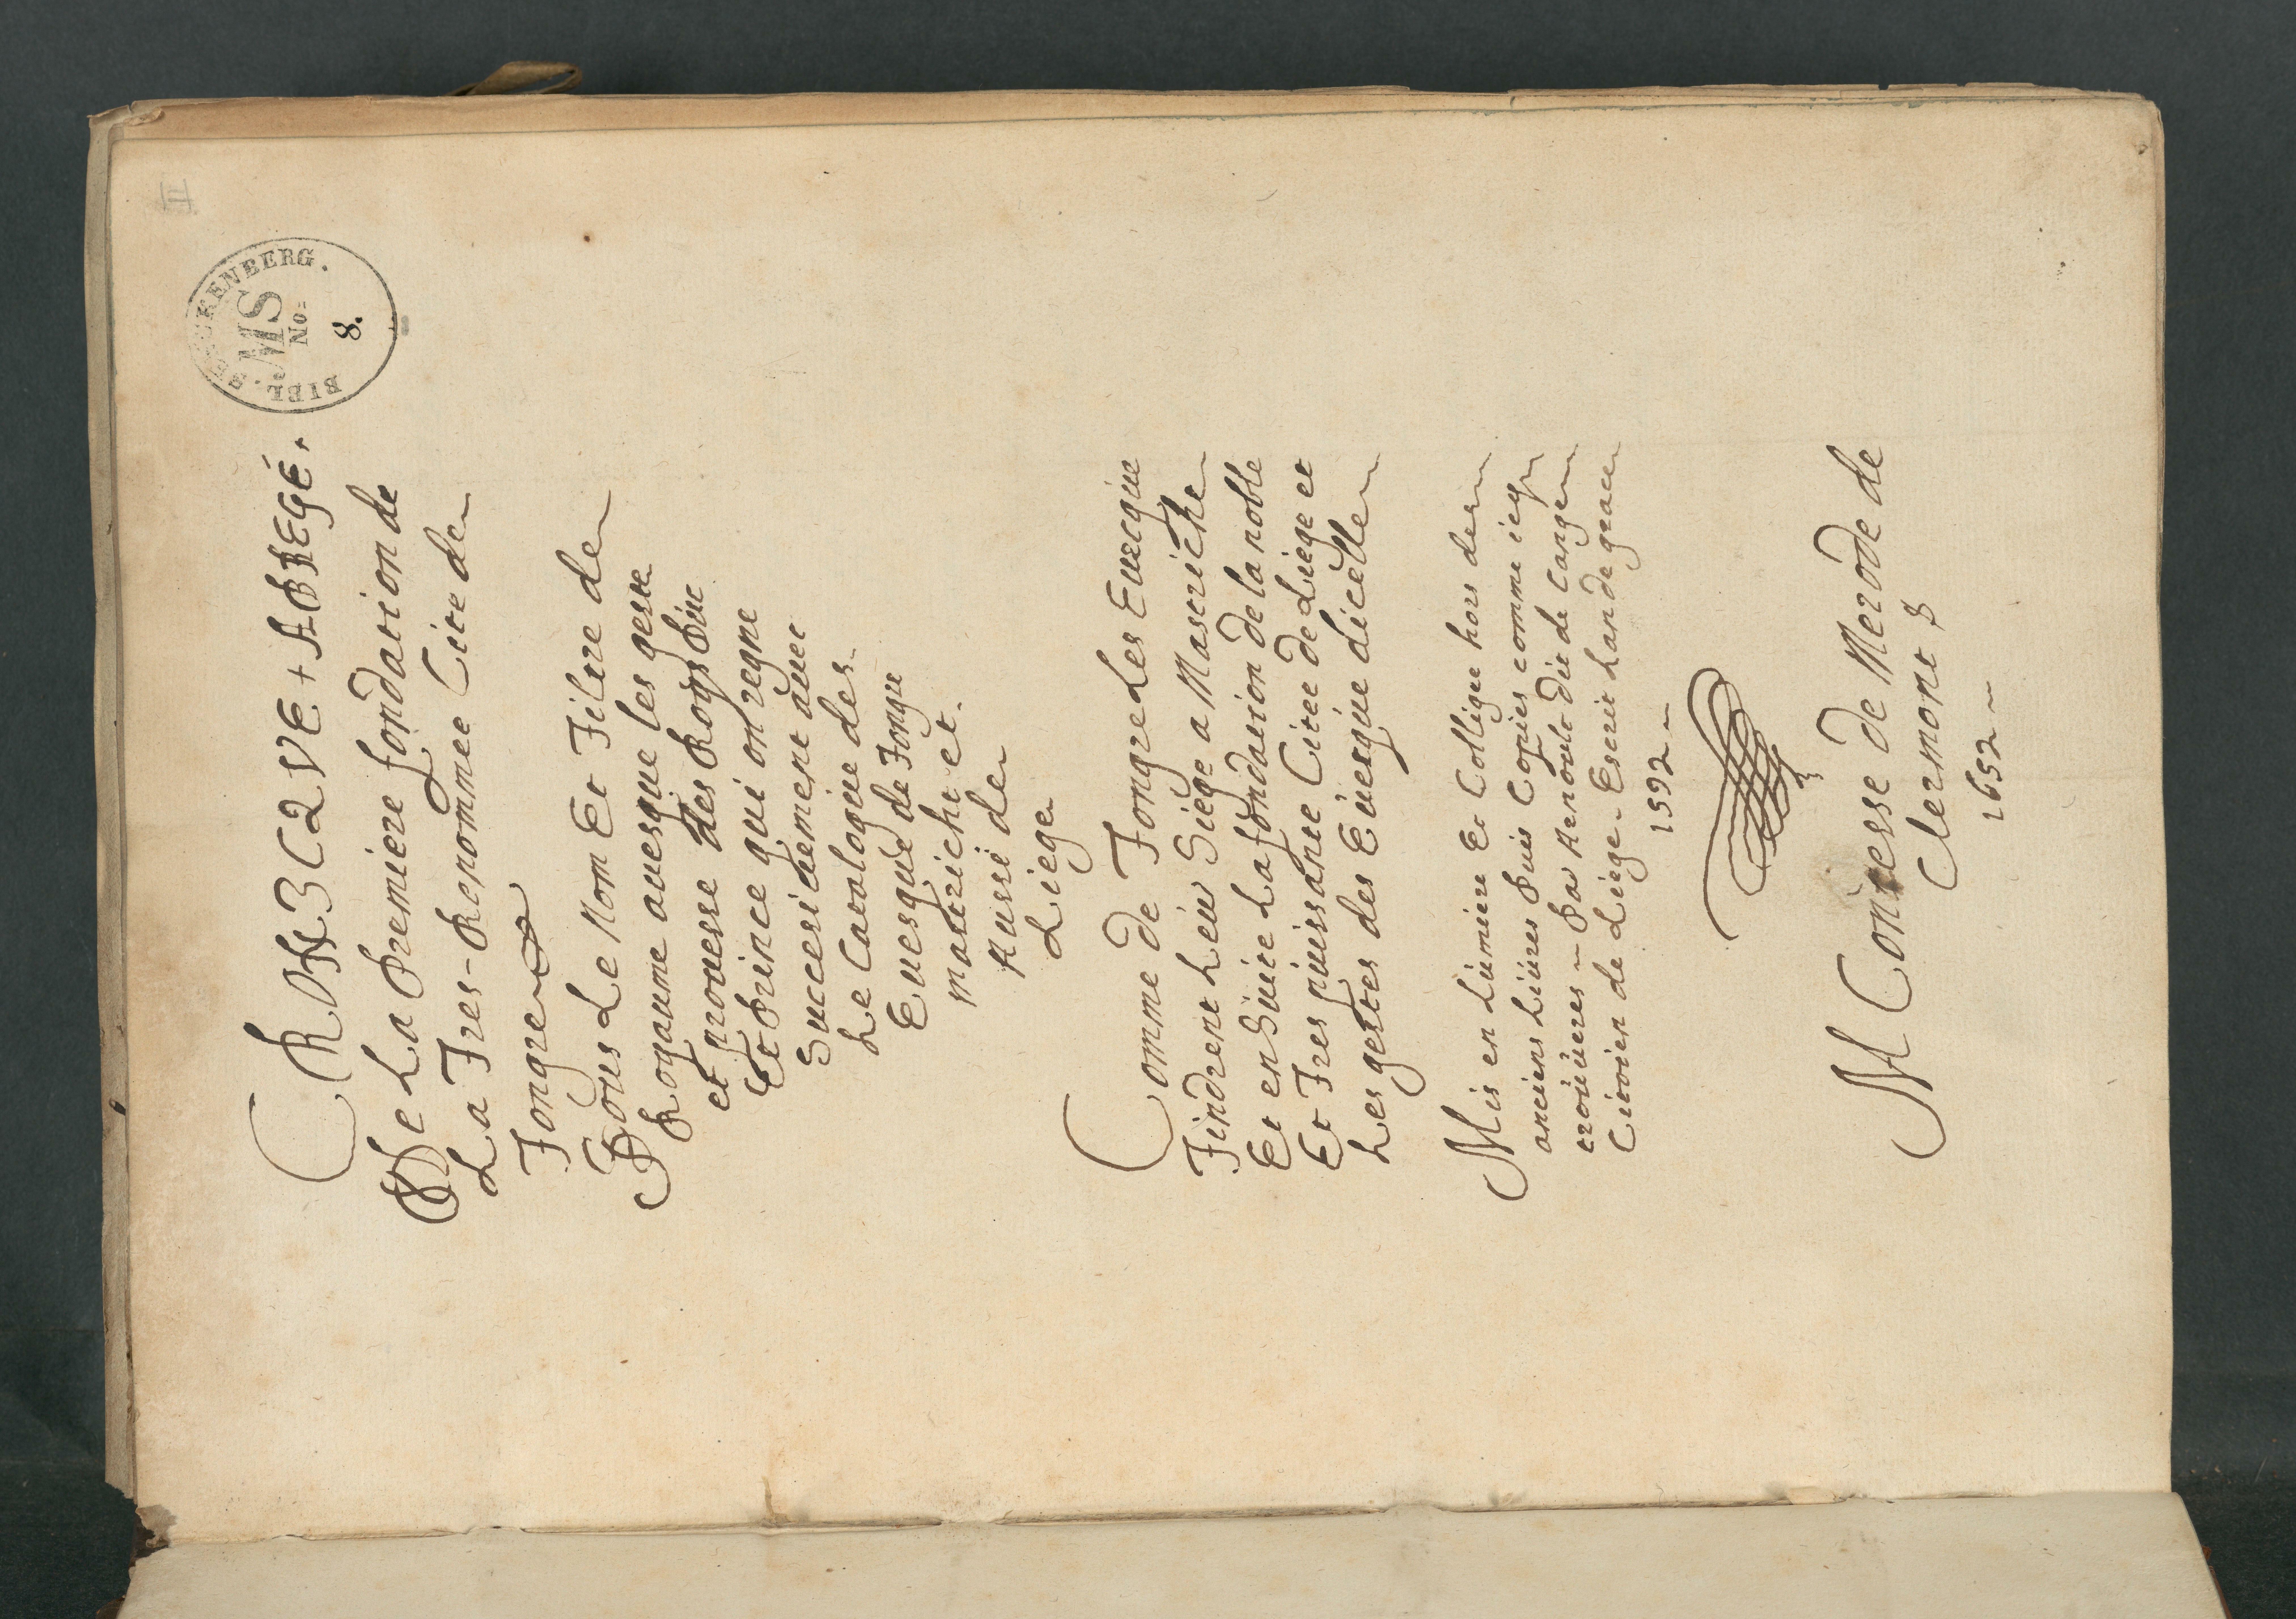 II
BIBL. MS No: 8.
CRONICQVE + ABREGÉ.
De La Premiere fondation de
La Tres-Renommee Cite de
Tongre
Sous Le Nom Et Tiltre de
Royaume auesque les geste
et prouesse des Roys Duc
Et Prince qui on regne
Successiuement auec
Le Catalogue des
Euesque de Tongre
mastricht et
Aussi de
Liege
Comme de Tongre Les Euecque
Tindrent Leur Siege a Mastricht
Et en Suite La fondation de la noble
Et Tres puissante Citee de Liege et
Les gestes des Euesque dicelle
Mis en Lumiere Et Collige hors des
anciens Liures Puis Copies comme icy
trouueres Par Renoult dit de Cange
Citoien de Liege Escrit Lan de grace
1592
M Contesse de Merode de
Clermont
1652